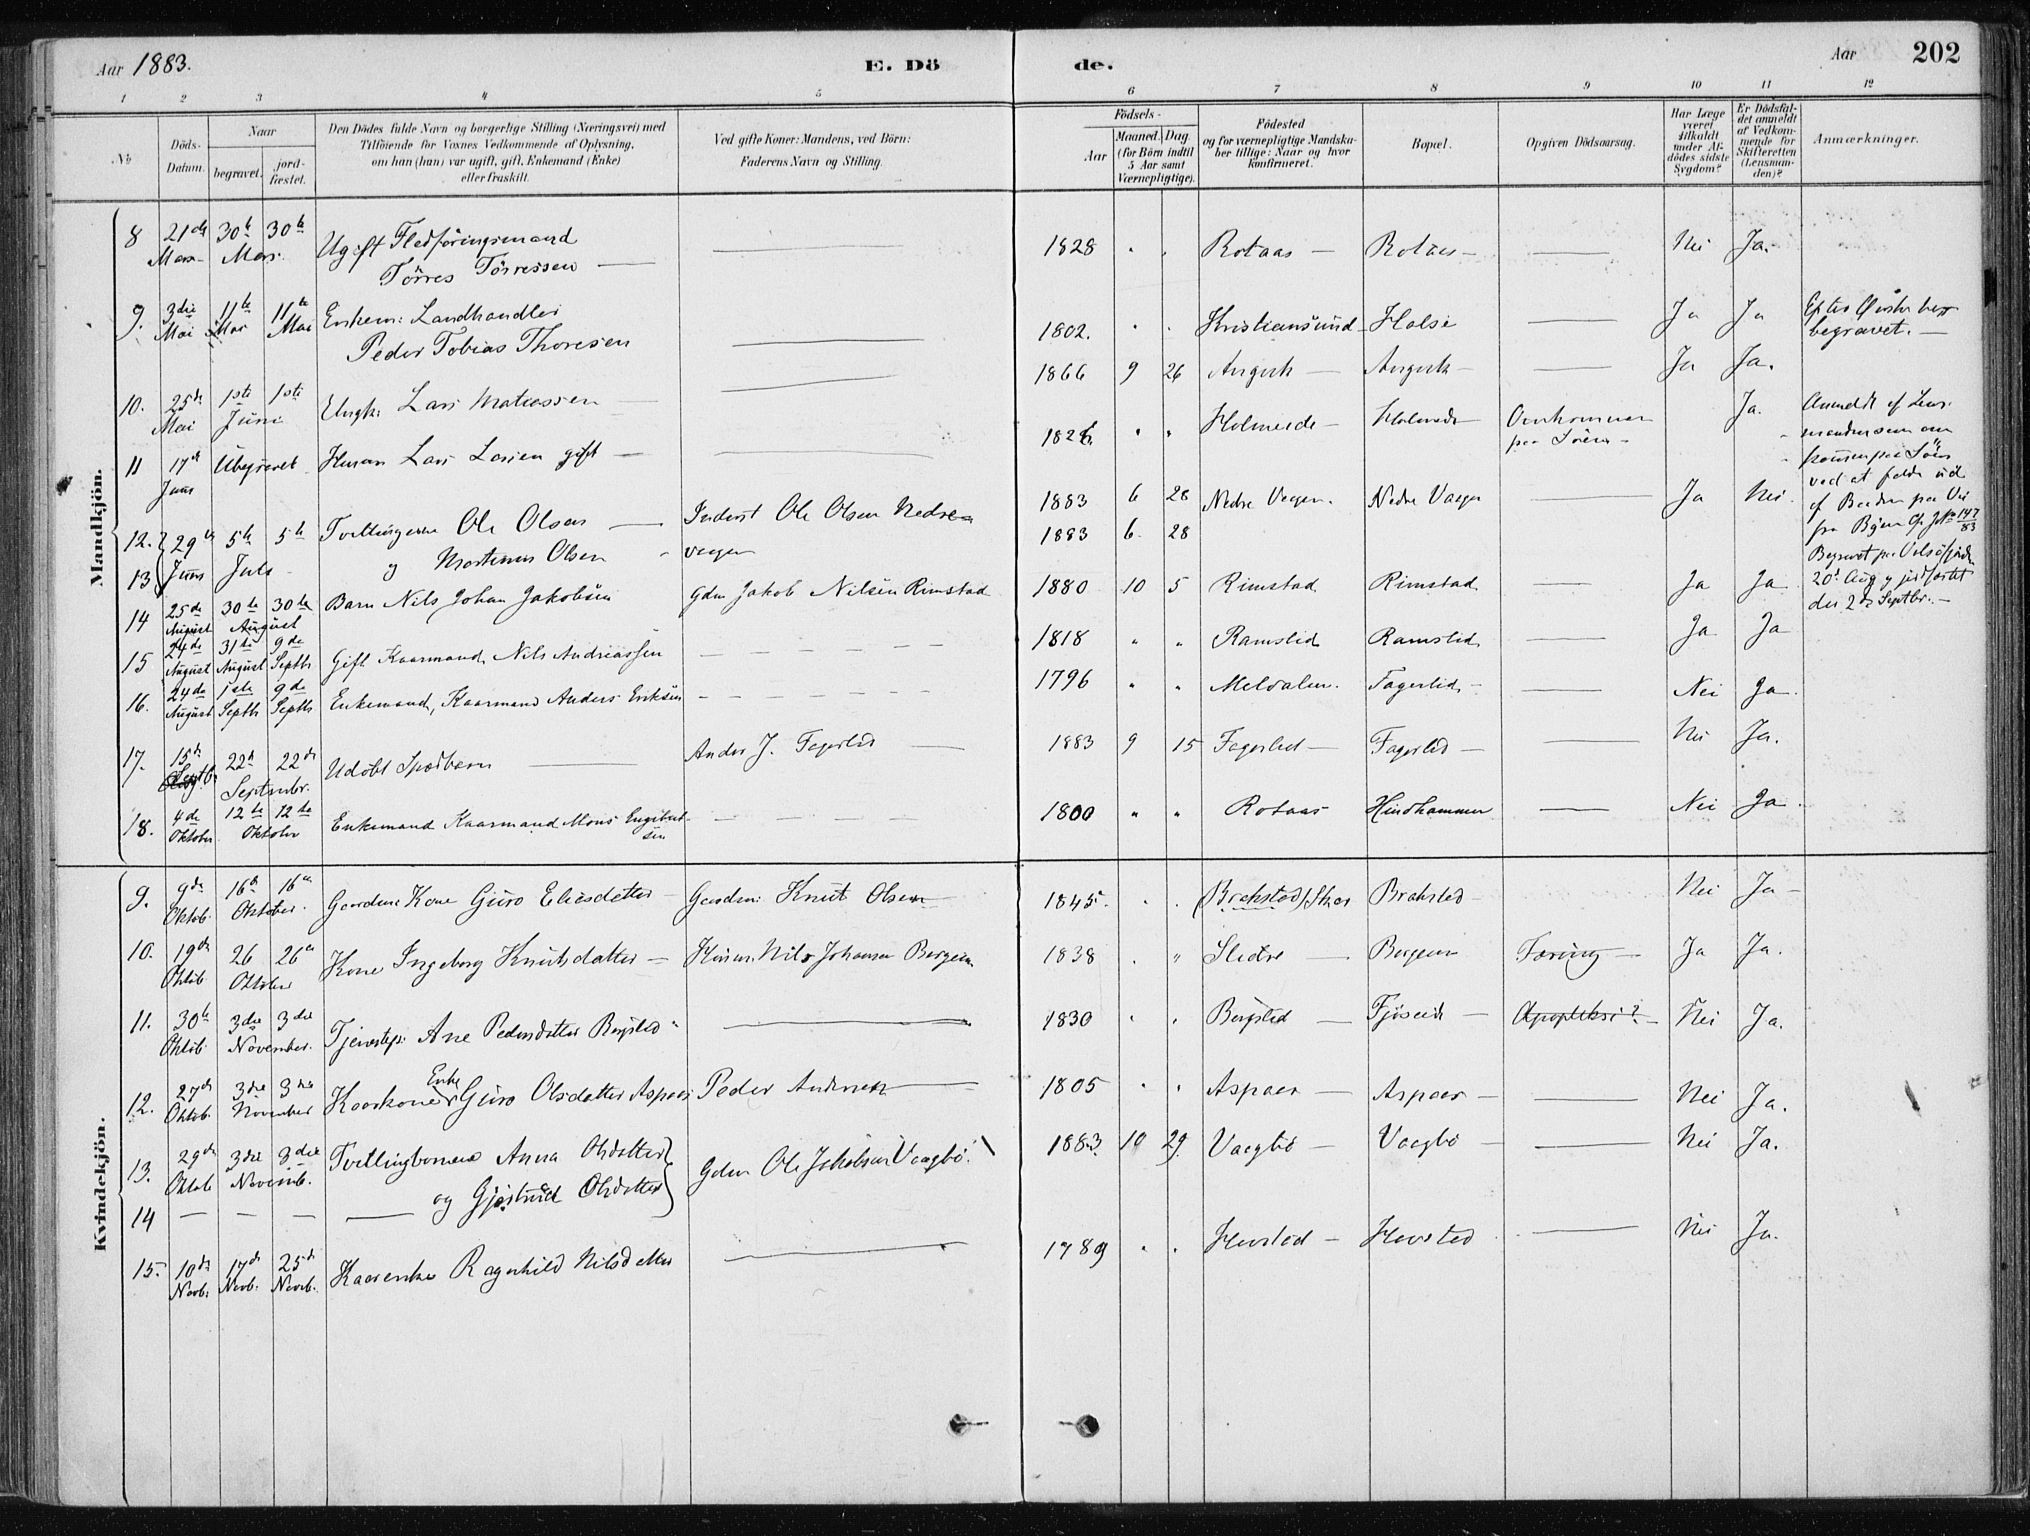 Aar 1883.
E. Dö de.
Aar
202
1 2 3 4 5 6 7 8 9 10 11 12
No
Döds-Datum.
Naar
begravet.
jord-fæstet.
Den Dödes fulde Navn og borgerlige Stilling (Næringsvei) med
Tilföiende for Voxnes Vedkommende af Oplysning,
om han (hun) var ugift, gift, Enkemand (Enke)
eller fraskilt.
Ved gifte Koner: Mandens, ved Börn:
Faderens Navn og Stilling.
Födsels-
Aar
Maaned. Dag.
(for Börn indtil 5 Aar samt Værnepligtige).
Födested
og for værnepligtige Mandska-
ber tillige: Naar og hvor
konfirmeret.
Bopæl.
Opgiven Dödsaarsag.
Har Læge været tilkaldt under Afdödes sidste Sygdom?
Er Dödsfaldet anmeldt af Vedkommende for Skifteretten (Lensmanden)?
Anmærkninger.
Mandkjön.
8 21de Mars 30te 30te Mars. Ugift Flodföringsmand Törres Törressen — 1828 Rotaas — Rotaas — Nei Ja.
9. 3die Mai 11te Mai 11te Mai Enkem: Landhandler Peder Tobias Thoresen 1802. Kristiansund Halse Ja Ja Efter begravet. —
10. 25de Mai 1ste 1ste Juni Ungk: Lars Matiassen — 1866 9 26 Angvik — Angvik — Ja Ja.
11 17de Juni Ubegravet Husm Lars Larsen gift — 182 Holmeide — Holmeide Omkommen paa Söen — Ja. Anmeldt af Lensmanden som omkommen paa Söen ved at falde ud af Baaden paa Vei fra Byen 147/83 Begravet paa 20de Aug og jordfæstet den 2de Septbr. —
12. 29de Juni 5te 5te Juli Tvillingerne Ole Olsen — Inderst Ole Olsen Nedrevaagen 1883 6 28 Nedre Vaagen. Nedre Vaagen Ja Nei.
13 og Martinus Olsen 1883 6. 28
14 25de August 30te 30te August Barn Nils Johan Jakobsen Gdm Jakob Nilsen Rimstad 1880 10 5 Rimstad Rimstad Ja Ja
15 24de August 31te August 9de Septbr Gift Kaarmand Nils Andriassen 1818 " " Ramslid Ramslid Ja Ja
16. 24de August 1ste Septbr 9de Septbr Enkemand, Kaarmand Anders Eriksen 1796 " " Meldalen. Fagerlid, — Nei Ja.
17. 15de Septb. 22de 22de Septembr. Udöbt Spædbarn Anders J. Fagerlid 1883 9 15 Fagerlid — Fagerlid — Nei Ja.
18. 4de Oktober 12te 12te Oktober Enkemand Kaarmand Mons Engibretsen 1800 " " Rotaas Hindhammer Nei Ja.
Kvindekjön.
9. 9de Oktob. 16de 16de Oktober. Gaardm: Kone Guro Eliasdatter — Gaardm: Knut Olsen 1845. (Brakstad) Brakstad — Nei Ja —
10. 19de Oktob 26 26de Oktober Kone Ingeborg Knutsdatter — Husm: Nils Johansen Bergem. 1838 Slidre — Bergem Tæring — Ja Ja.
11. 30te Oktob. 3die 3die November. Tjenestep: Ane Pedersdatter Bergslid 1830 Bergslid — Fjöseid — Apopleksi? — Nei Ja.
12. 27de Oktob. 3die 3die November Kaarkone Enke Guro Olsdatter Aspaas Peder Andersen 1805 Aspaas — Aspaas — Nei Ja.
13. 29de Oktob 3die 3die Novemb. Tvillingbörnene Anna Olsdatter Gdm Ole Jakobsen Vaagbö. 1883 10 29. Vaagbö — Vaagbö — Nei Ja.
14 — — — og Gjertrud Olsdatter
15. 10de Novb. 17de Novb. 25de Novb. Kaarenke Ragnhild Nilsdatter 1789 Harstad — Harstad Nei Ja.